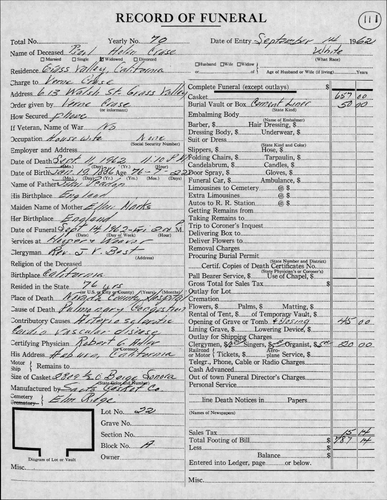 RECORD OF FUNERAL
111
Total No. Yearly No. 70 Date of Entry September 14 1962
Name of Deceased Pearl Helen Crase White
(What Race)
Married Single Widowed Divorced
Husband Wife Widow
Residence Grass Valley, California
Age of Husband or Wife (if living) Years
Charge to Verne Crase
Address 613 Walsh St. Grass Valley
Order given by Verne Crase
(or informant)
How Secured phone
If Veteran, of War No
Occupation Housewife None
(Social Security Number)
Employer and Address
Date of Death Sept. 11, 1962 11:10 P.M.
Date of Birth Jan 19, 1886 Age 76-7-22
Name of Father
His Birthplace England
Maiden Name of Mother Ellen Noaks
Her Birthplace England
Date of Funeral Sept 14 1962
Services at Hooper & Weaver
Clergyman Rev.
Religion of the Deceased
Birthplace California
Resided in the State 76 yrs
Place of Death Nevada County Hospital
Cause of Death Pulmonary Congestion
Contributory Causes
vascular disease
Certifying Physician Robert
His Address Auburn, California
Motor
Ship
Remains to
Size of Casket
Manufactured by
Cemetery
Crematory
Elm Ridge
Lot No. 22
Grave No.
Section No.
Block No. A
Owner
Diagram of Lot or Vault
Misc.
Complete Funeral (except outlays) $
Casket 657 00
Burial Vault or Box Cement Liner 50 00
(State Kind)
Embalming Body
(Name of Embalmer)
Barber, $ Hair Dressing, $
Dressing Body, $ Underwear, $
Suit or Dress
(State Kind and Color)
Slippers, $ Hose, $
Folding Chairs, $ Tarpaulin, $
Candelabrum, $ Candles, $
Door Spray, $ Gloves, $
Funeral Car, $ Ambulance, $
Limousines to Cemetery @ $
Extra Limousines @ $
Autos to R. R. Station @ $
Getting Remains from
Taking Remains to
Trip to Coroner's Inquest
Delivering Box to
Deliver Flowers to
Removal Charges
Procuring Burial Permit
(State Number and District)
Certif. Copies of Death Certificates No.
(State Physician's or Coroner's)
Pall Bearer Service, $ Use of Chapel, $
Gross Total for Sales Tax $
Outlay for Lot
Cremation
Flowers, $ Palms, $ Matting, $
Rental of Tent, $ or Temporary Vault, $
Opening of Grave or Tomb & closing 45 00
Lining Grave, $ Lowering Device, $
Outlay for Shipping Charges
Clergymen, $ Singers, $ Organist, $ 20 00
Railroad
or Motor
Tickets, $ Aero-
plane Service, $
Telegr., Phone, Cable or Radio Charges
Cash Advanced
Out of town Funeral Director's Charges
Personal Service
line Death Notices in Papers
(Names of Newspapers)
Sales Tax 15 14
Total Footing of Bill $ 787 14
Less $
Balance $
Entered into Ledger, page or below.
Misc.